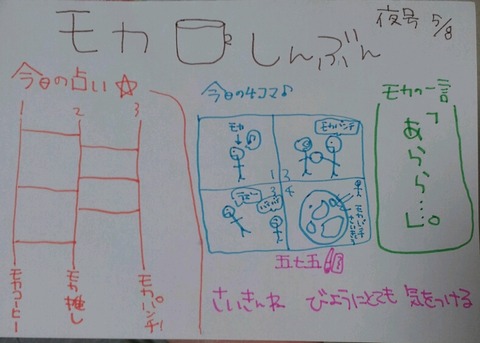 モカしんぶん
夜号 5/8
今日の占い☆
1 2 3
モカコーヒー
モカ推し
モカパンチ!
今日の4コマ♪
モカ
1
モカパンチ
3
3
4
モカパンチ
さいきょう
モカの一言
「あららら…。」
五七五
さいきんね びようにとても 気をつける